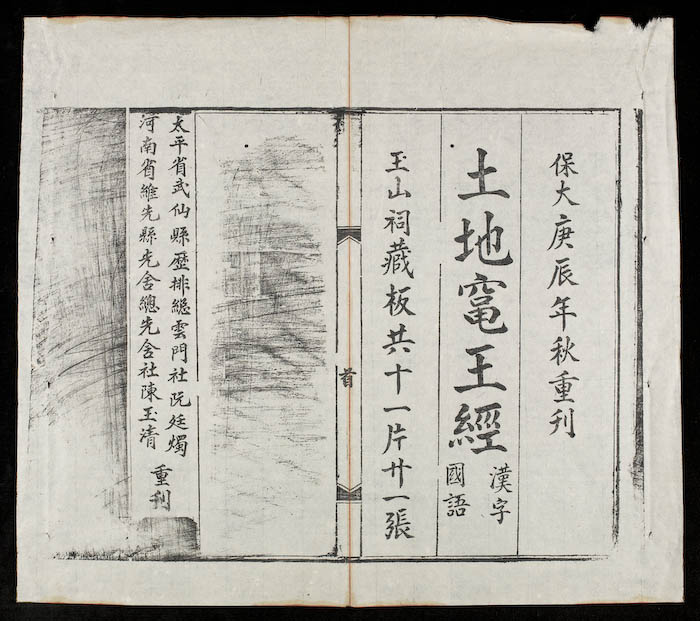 保大庚辰年秋重刊
土地竈王經
漢字
國語
玉山祠藏板共十一片廿一張
首
太平省武仙縣歷排總雲門社阮廷燭
河南省維先縣先舍總先舍社陳玉清
重刊